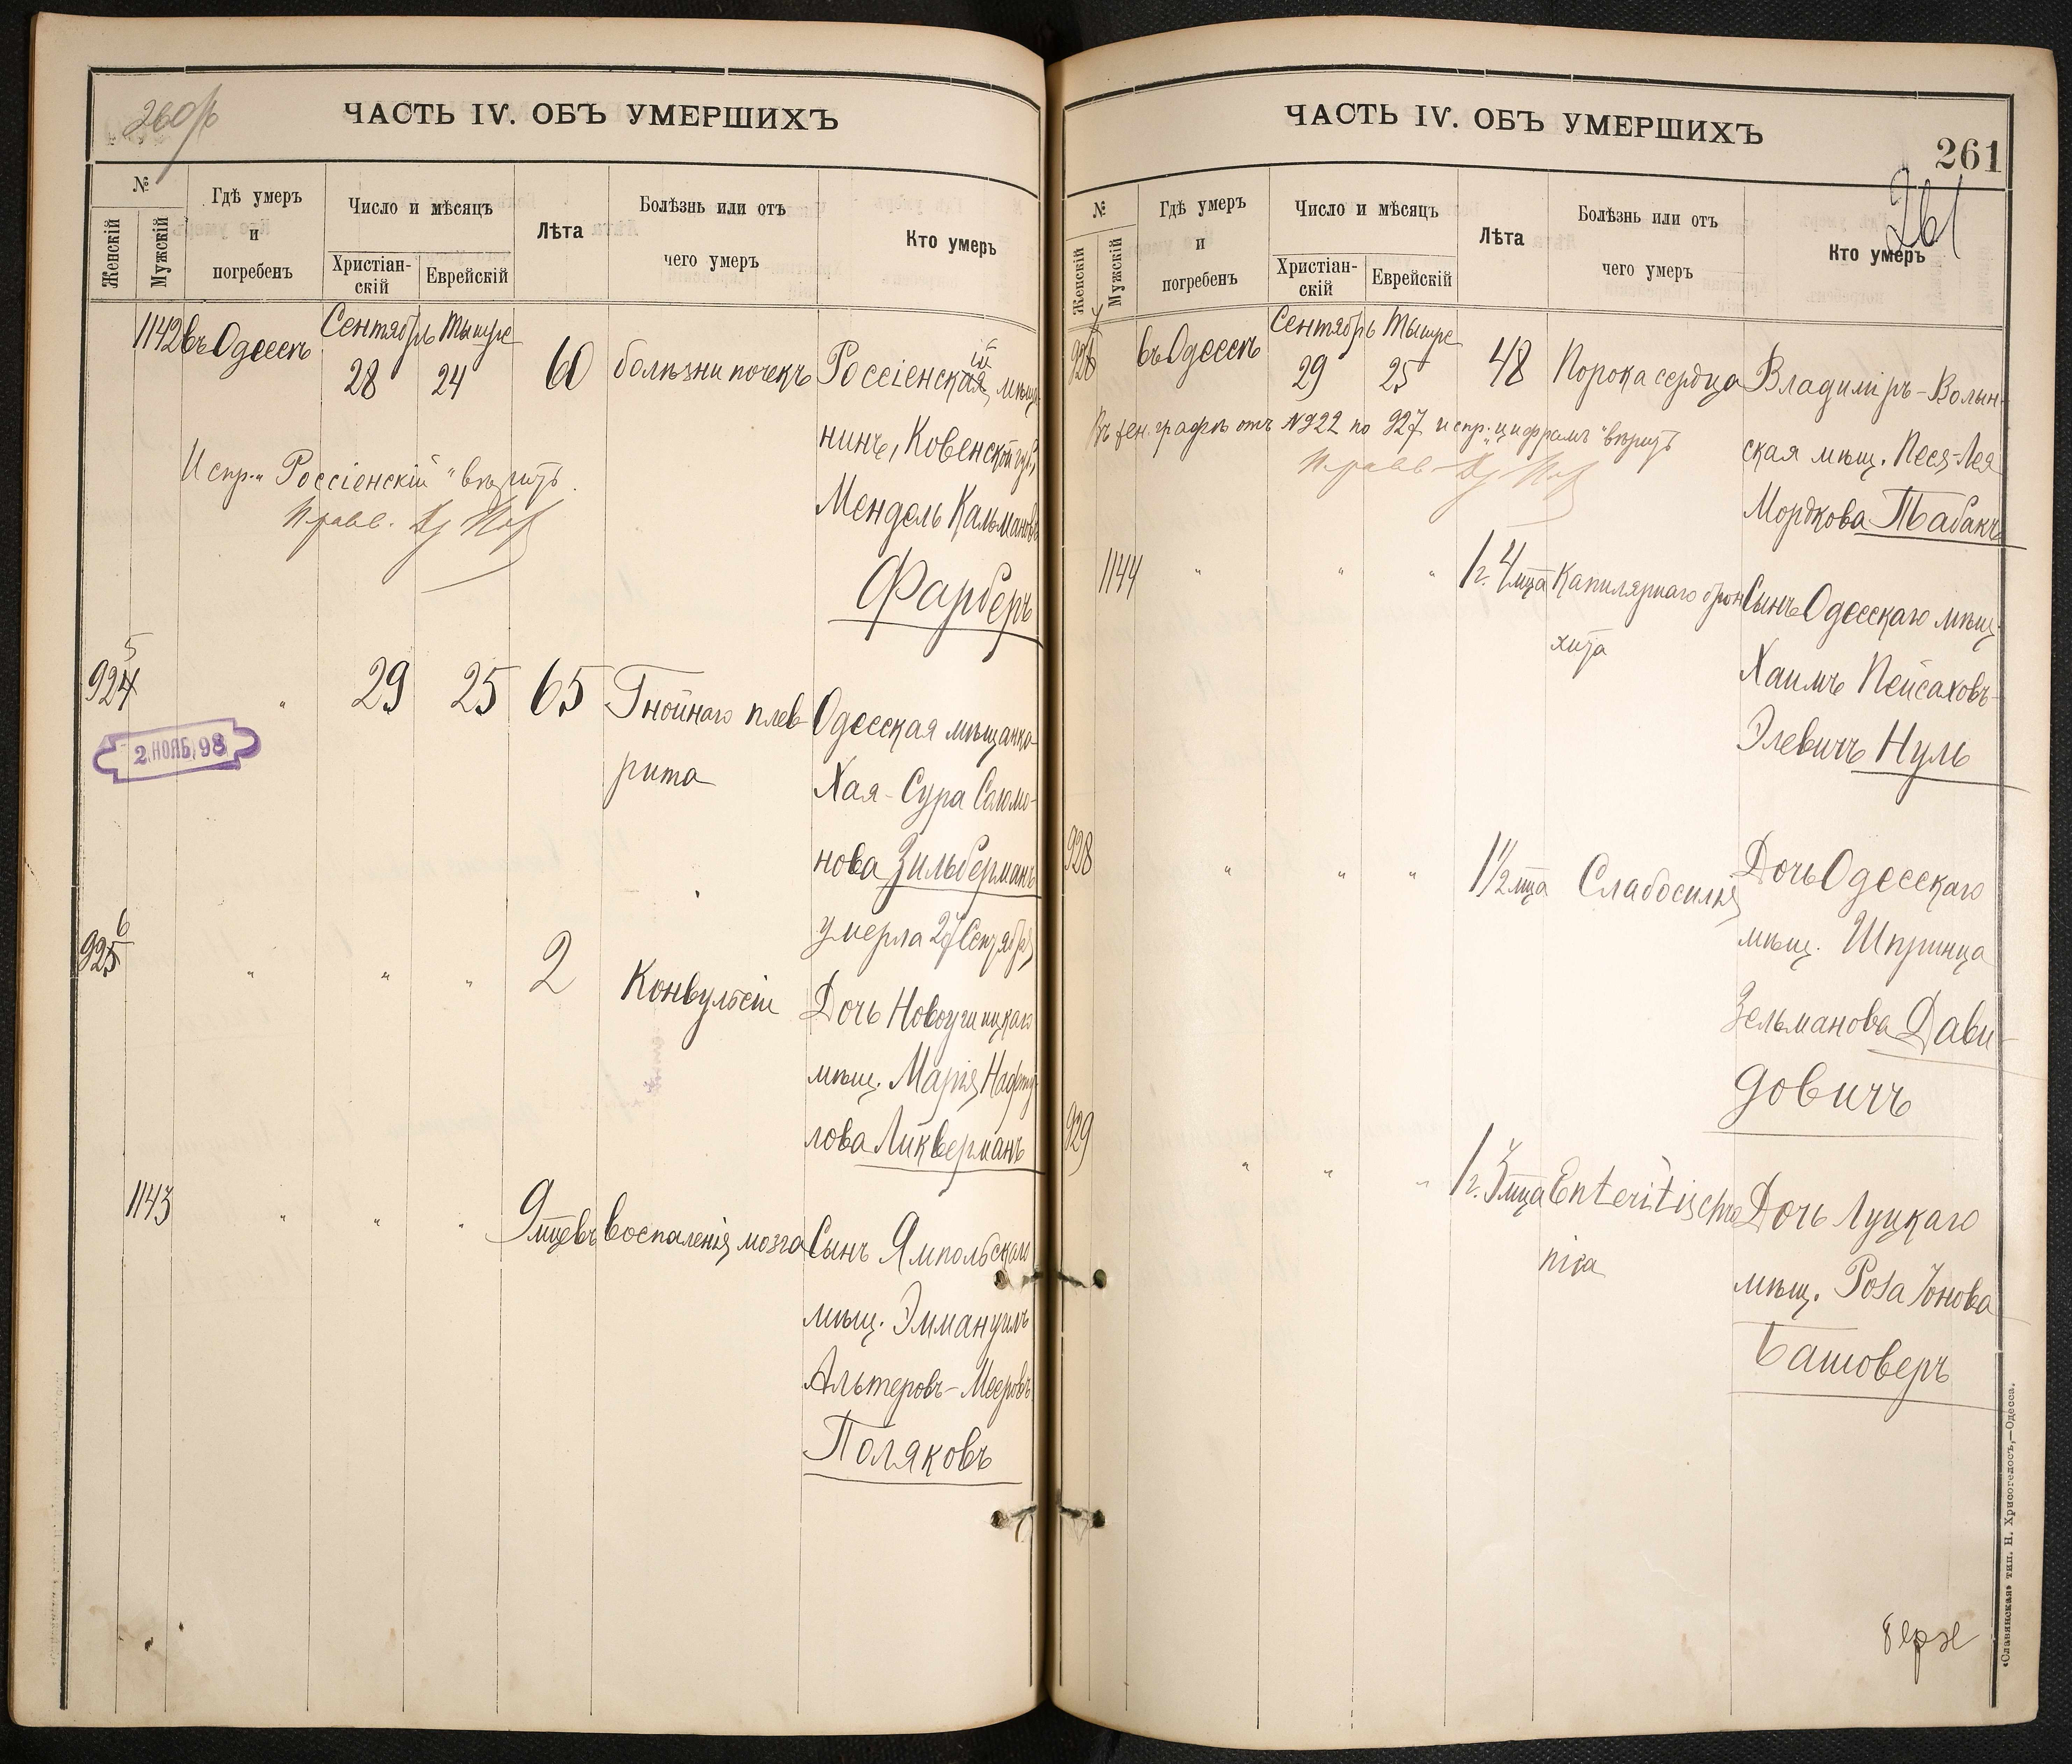 260 об
ЧАСТЬ IV. ОБЪ УМЕРШИХЪ
№
Женскій
Мужскій
Гдѣ умеръ
и
погребенъ
Число и мѣсяцъ
Христіан-
скій
Еврейскій
Лѣта
Болѣзнь или отъ
чего умеръ
Кто умеръ
1142 въ Одессѣ Сентябрь Тышре
28 24 60 болѣзни почекъ Россіенскій мѣща-
нинъ, Ковенской губ.,
Мендель Кальмановъ
Фарберъ
Испр. "Россіенскій" вѣрить.
925 " 29 25 65 Гнойнаго плев-
рита
Одесская мѣщанка
Хая-Сура Соломо-
нова Зильберманъ
умерла 27 Сентября
2 НОЯБ. 98
926 " " " 2 Конвульсіи Дочь Новоушицкаго
мѣщ. Марія Нафту-
лова Ликверманъ
1143 " " " 9 мцевъ воспаленія мозга Сынъ Ямпольскаго
мѣщ. Эммануилъ
Альтеровъ-Мееровъ
Поляковъ
ЧАСТЬ IV. ОБЪ УМЕРШИХЪ
261
261
№
Женскій
Мужскій
Гдѣ умеръ
и
погребенъ
Число и мѣсяцъ
Христіан-
скій
Еврейскій
Лѣта
Болѣзнь или отъ
чего умеръ
Кто умеръ
927 въ Одессѣ Сентябрь Тышре
29 25 48 Порока сердца Владиміръ-Волын-
ская мѣщ. Песя-Лея
Мордкова Табакъ
Въ жен. графѣ отъ №922 по 927 испр. "цифрамъ" вѣрить
1144 " " " 1 г. 4 мца Капилярнаго брон-
хита
Сынъ Одесскаго мѣщ.
Хаимъ Пейсаховъ-
Элевичъ Нуль
928 " " " 1 1/2 мца Слабосилія Дочь Одесскаго
мѣщ. Шпринца
Зельманова Дави-
довичъ
929 " " " 1 г. 3 мца Дочь Луцкаго
мѣщ. Роза Іонова
Башоверъ
«Славянская» тип. Н. Хрисогелосъ,—Одесса.